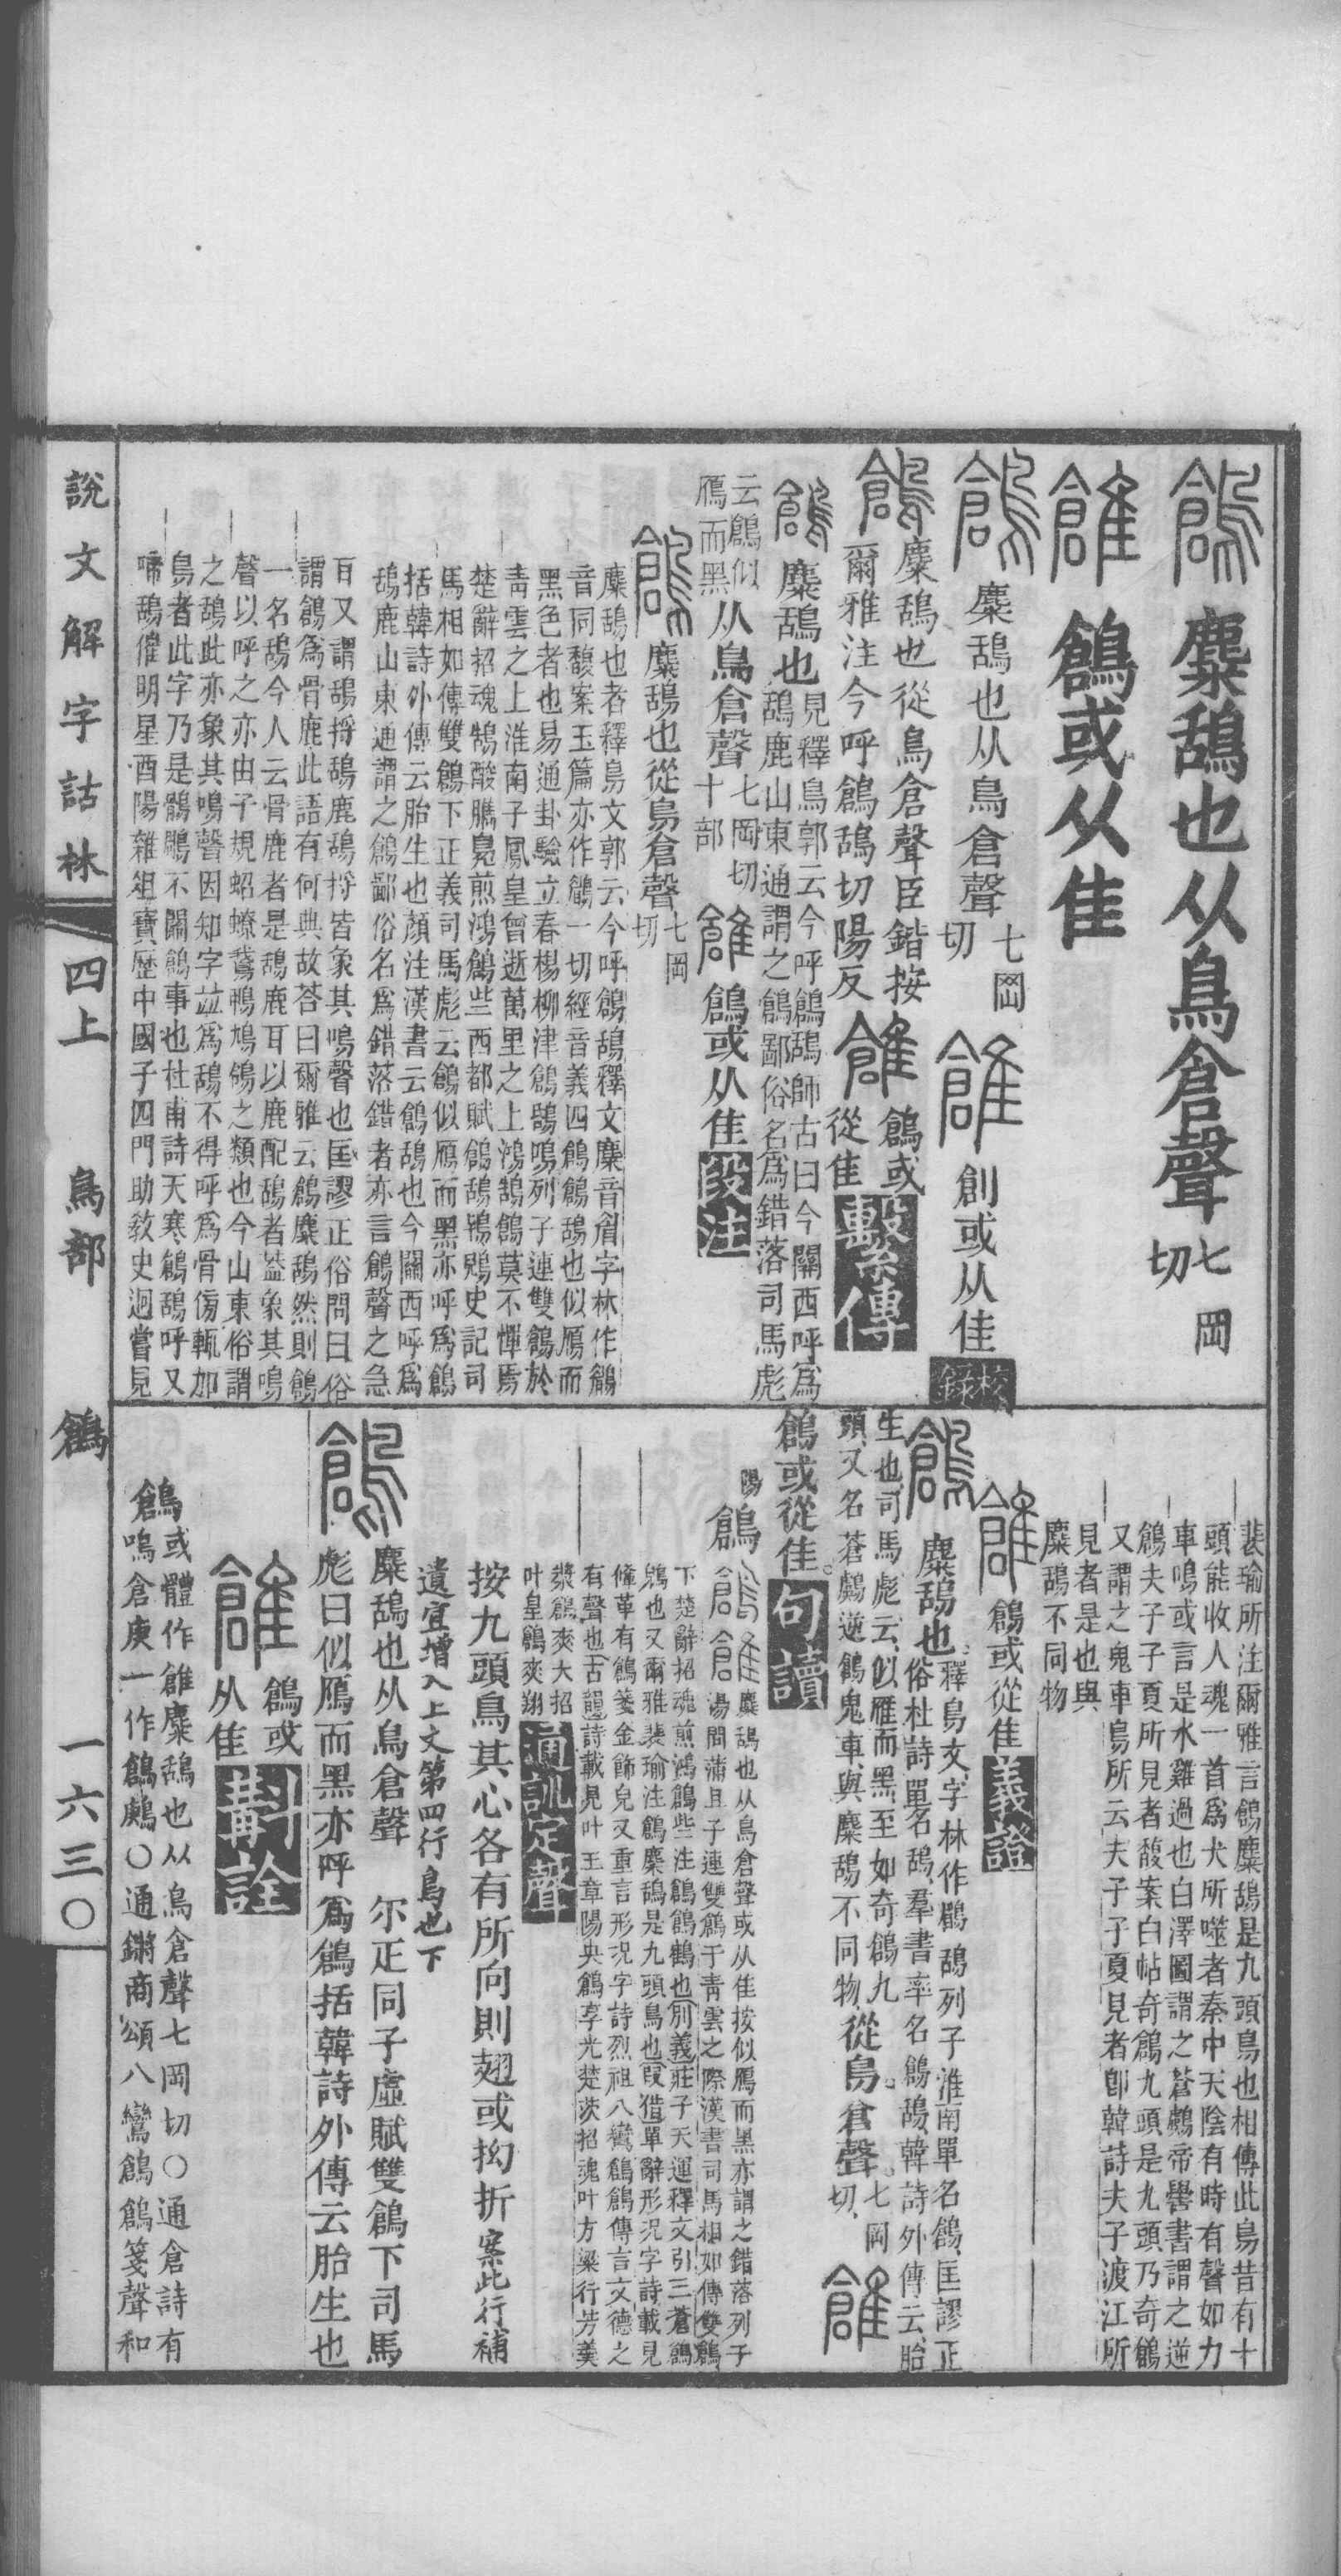 鶬 麋鴰也从鳥倉聲七岡切
雒 鶬或从隹
鶬 麋鴰也从鳥倉聲七岡切 創或从隹 校錄
鶬 麋鴰也從鳥倉聲臣鍇按
爾雅注今呼鶬鴰切陽反 鶬或從隹 繫傳
鶬 麋鴰也見釋鳥郭云今呼鶬鴰師古曰今關西呼爲
鴰鹿山東通謂之鶬鄙俗名爲錯落司馬彪
云鶬似
鴈而黑从鳥倉聲七岡切十部 鶬或从隹 段注
鶬 麋鴰也從鳥倉聲七岡切
麋鴰也者釋鳥文郭云今呼鶬鴰釋文麋音眉字林作鶥
音同馥案玉篇亦作鶥一切經音義四鶬鶬鴰也似鴈而
黑色者也易通卦驗立春楊柳津鶬鴰鳴列子連雙鶬於
靑雲之上淮南子鳳皇曾逝萬里之上鴻鵠鶬莫不憚焉
楚辭招魂鵠酸臇鳧煎鴻鶬些西都賦鶬鴰鴇鶂史記司
馬相如傳雙鶬下正義司馬彪云鶬似鴈而黑亦呼爲鶬
括韓詩外傳云胎生也顏注漢書云鶬鴰也今關西呼爲
鴰鹿山東通謂之鶬鄙俗名爲錯落錯者亦言鶬聲之急
耳又謂鴰捋鴰鹿鴰捋皆象其鳴聲也匡謬正俗問曰俗
謂鶬爲骨鹿此語有何典故荅曰爾雅云鶬麋鴰然則鶬
一名鴰今人云骨鹿者是鴰鹿耳以鹿配鴰者葢象其鳴
聲以呼之亦由子規蛁蟟鵞鴨鳩鴿之類也今山東俗謂
之鴰此亦象其鳴聲因知字竝爲鴰不得呼爲骨傍輒加
鳥者此字乃是鶻鵰不關鶬事也杜甫詩天寒鶬鴰呼又
啼鴰催明星酉陽雜俎寶歷中國子四門助敎史迥嘗見
裴瑜所注爾雅言鶬麋鴰是九頭鳥也相傳此鳥昔有十
頭能收人魂一首爲犬所噬者秦中天陰有時有聲如力
車鳴或言是水雞過也白澤圖謂之蒼鸆帝嚳書謂之逆
鶬夫子子夏所見者馥案白帖奇鶬九頭是九頭乃奇鶬
又謂之鬼車鳥所云夫子子夏見者卽韓詩夫子渡江所
見者是也與
麋鴰不同物
鶬或從隹 義證
鶬 麋鴰也釋鳥文字林作鶥鴰列子淮南單名鶬匡謬正
俗杜詩單名鴰羣書率名鶬鴰韓詩外傳云胎
生也司馬彪云似雁而黑至如奇鶬九
頭又名蒼鸆逆鶬鬼車與麋鴰不同物從鳥倉聲七岡切
鶬或從隹 句讀
陽 鶬 麋鴰也从鳥倉聲或从隹按似鴈而黑亦謂之錯落列子
湯問蒲且子連雙鶬于靑雲之際漢書司馬相如傳雙鶬
下楚辭招魂煎鴻鶬些注鶬鶬鶴也別義莊子天運釋文引三蒼鶬
鴰也又爾雅裴瑜注鶬麋鴰是九頭鳥也叚借單辭形況字詩載見
鞗革有鶬箋金飾皃又重言形況字詩烈祖八鸞鶬鶬傳言文德之
有聲也古韻詩載見叶王章陽央鶬享光楚茨招魂叶方粱行芳羹
漿鶬爽大招
叶皇鶬爽翔 通訓定聲
按九頭鳥其心各有所向則翅或拗折案此行補
遺宜增入上文第四行鳥也下
鶬 麋鴰也从鳥倉聲 尔正同子虛賦雙鶬下司馬
彪曰似鴈而黑亦呼爲鶬括韓詩外傳云胎生也
鶬或从隹 斠詮
鶬或體作雒麋鴰也从鳥倉聲七岡切○通倉詩有
鶬鳴倉庚一作鶬鶊○通鏘商頌八鸞鶬鶬箋聲和
說文解字詁林 四上 鳥部 鶬 一六三〇